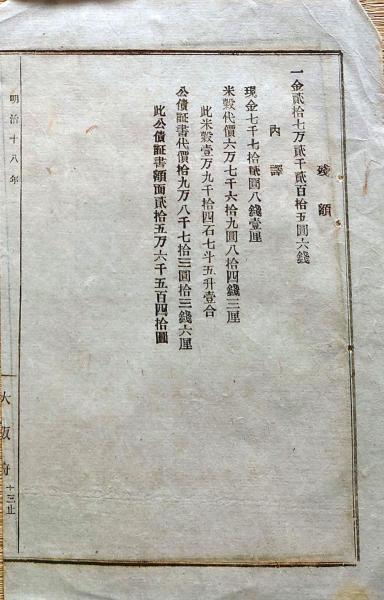 残額
一金貳拾七万貳千貳百拾五圓六錢
內譯
現金七千七拾貳圓八錢壹厘
米穀代價六万七千六拾九圓八拾四錢三厘
此米穀壹万九千拾四石七斗五升壹合
公債証書代價拾九万八千七拾三圓拾三錢六厘
此公債証書額面貳拾五万六千五百四拾圓
明治十八年
大阪府
十三止